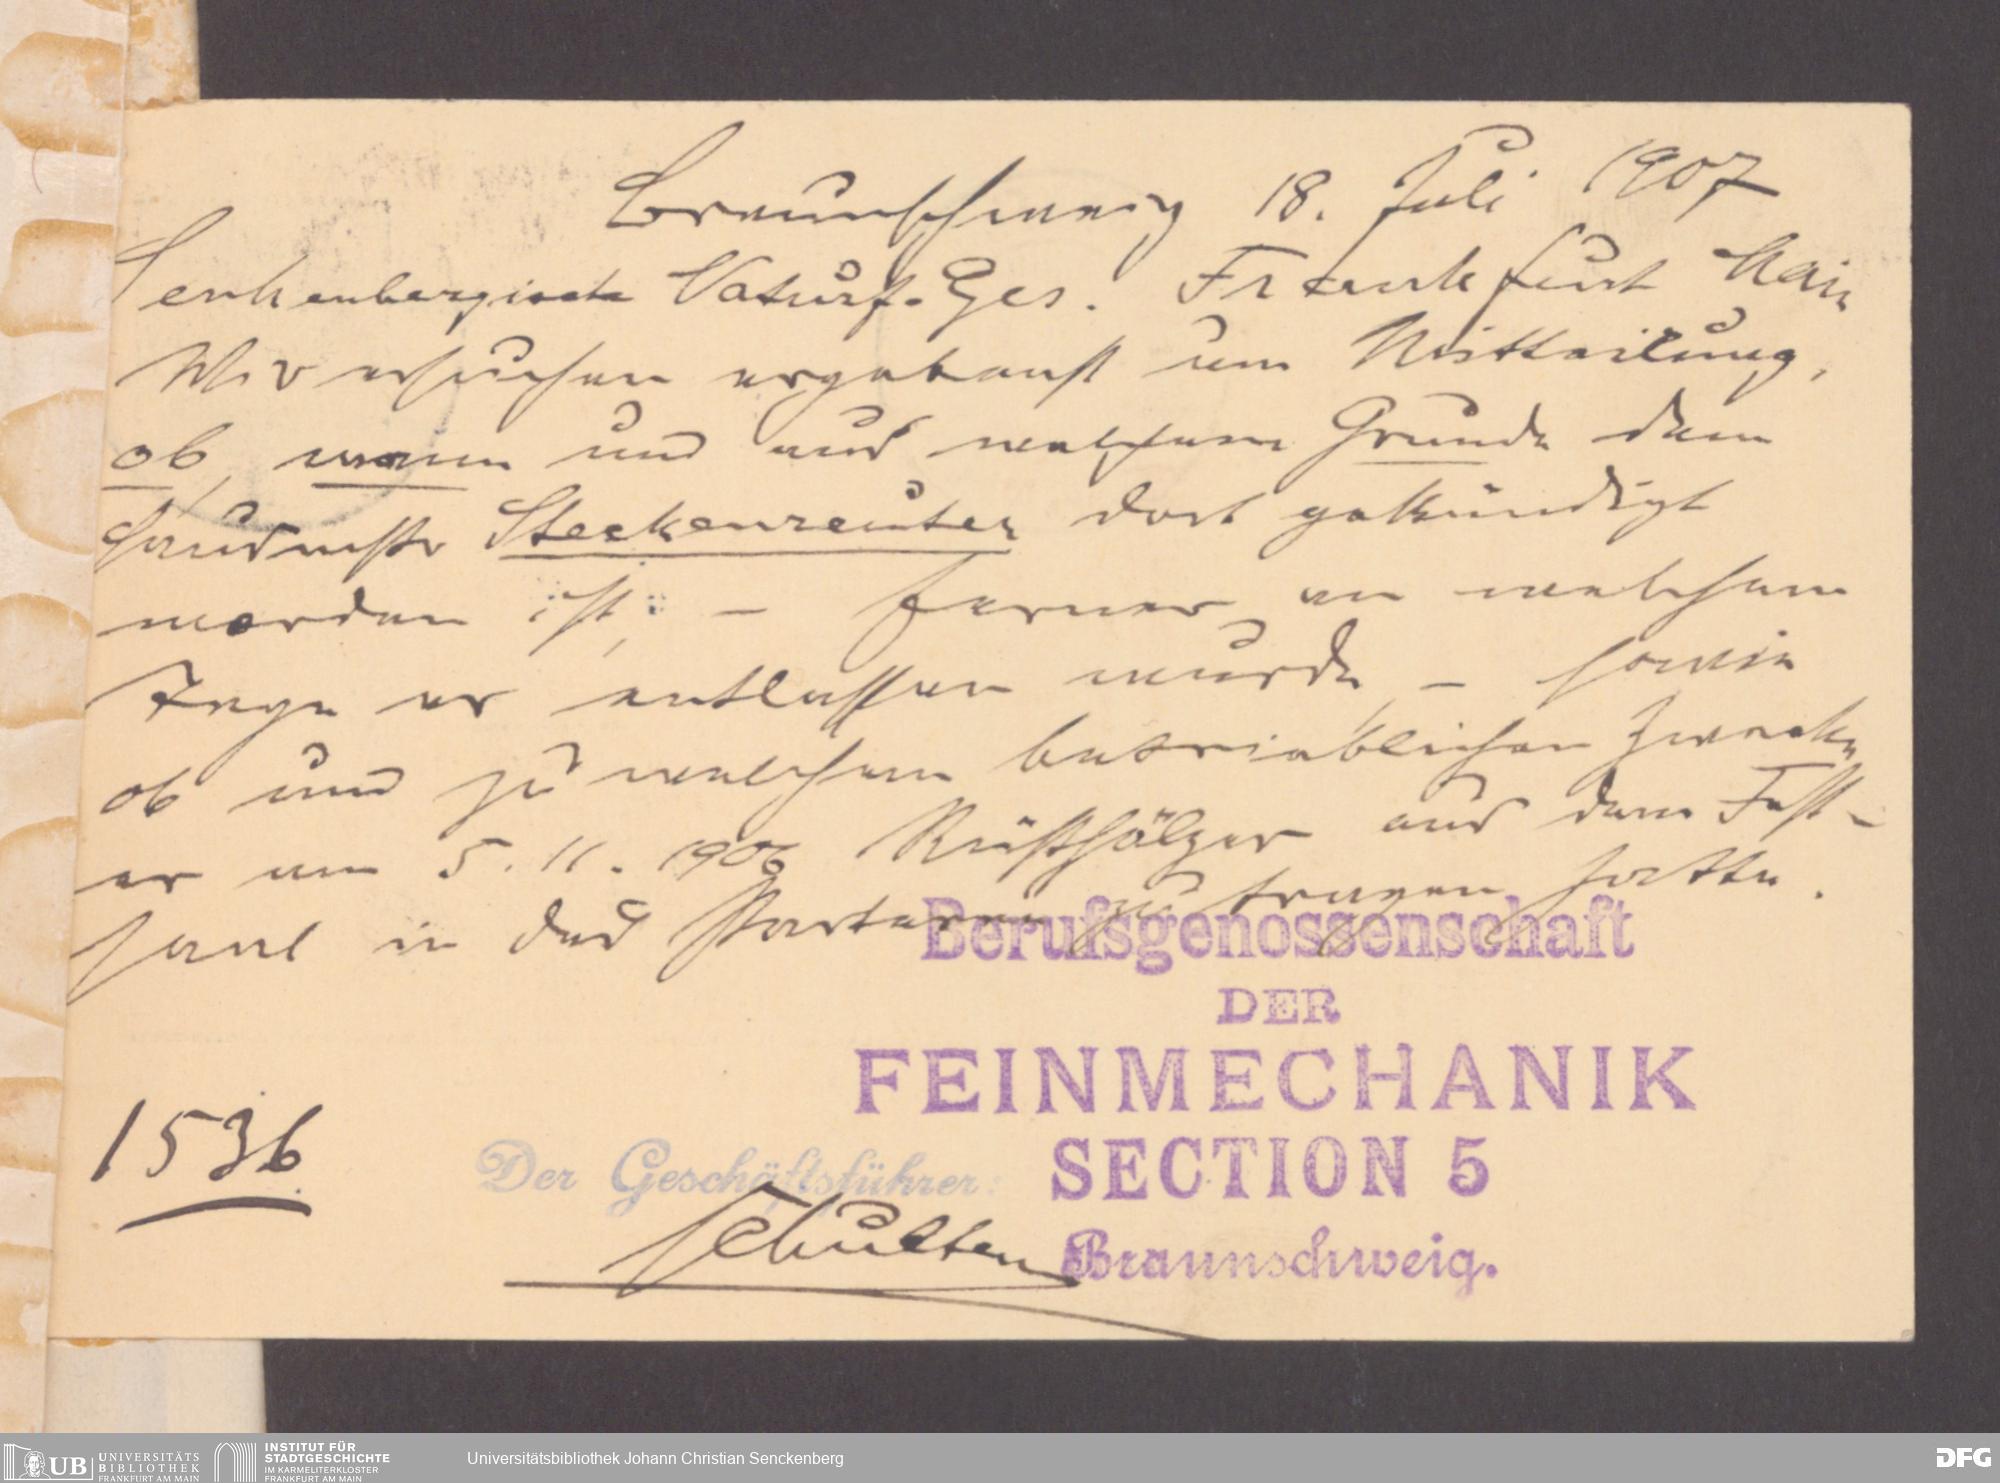 Braunschweig 18. Juli 1907
Senkenbergische Naturf. Ges. Frankfurt Main
Wir ersuchen ergebenst um Mitteilung,
ob, wann und aus welchem Grunde dem
Hausmstr Steckenreuter dort gekündigt
worden ist; – ferner, an welchem
Tage er entlassen wurde, – sowie
ob und zu welchem betrieblichen Zwecke
er am 5.11.1906 Rüsthölzer aus dem Fest-
saal in das Parterre zu tragen hatte.
Berufsgenossenschaft
DER
FEINMECHANIK
SECTION 5
Braunschweig.
1536
Der Geschäftsführer:
Schulten
UB UNIVERSITÄTS
BIBLIOTHEK
FRANKFURT AM MAIN
INSTITUT FÜR
STADTGESCHICHTE
IM KARMELITERKLOSTER
FRANKFURT AM MAIN
Universitätsbibliothek Johann Christian Senckenberg
DFG